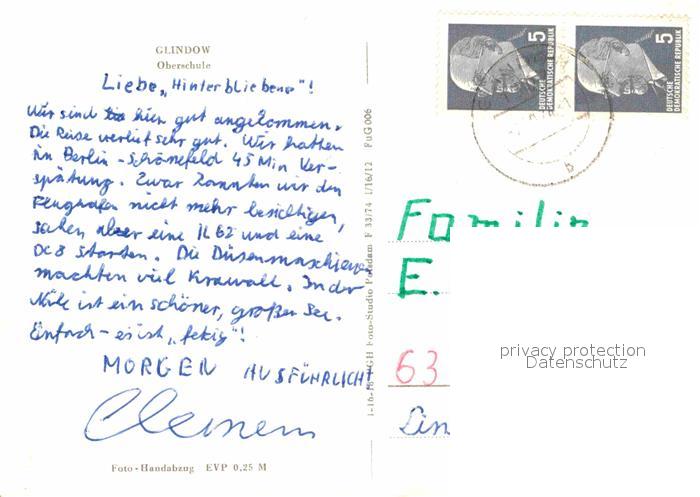 GLINDOW
Oberschule
Liebe „Hinterbliebene"!
Wir sind hier gut angekommen.
Die Reise verlief sehr gut. Wir hatten
in Berlin-Schönefeld 45 Min Ver-
spätung. Zwar konnten wir den
Flughafen nicht mehr besichtigen,
sahen aber eine IL 62 und eine
DC8 starten. Die Düsenmaschienen
machten viel Krawall. In der
Nähe ist ein schöner, großer See.
Einfach - es ist „fetzig"!
MORGEN AUSFÜHRLICH!
Clemens
Foto-Handabzug EVP 0,25 M
Foto-Studio Potsdam F 33/74 1/16/12 FuG 006
5
DEUTSCHE
DEMOKRATISCHE REPUBLIK
5
DEUTSCHE
DEMOKRATISCHE REPUBLIK
Familie
E.
63
privacy protection
Datenschutz